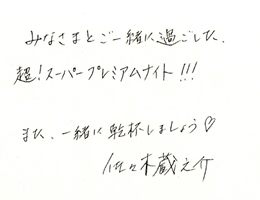 みなさまとご一緒に過ごした、
超!スーパープレミアムナイト!!!
また、一緒に乾杯しましょう♡
佐々木蔵之介